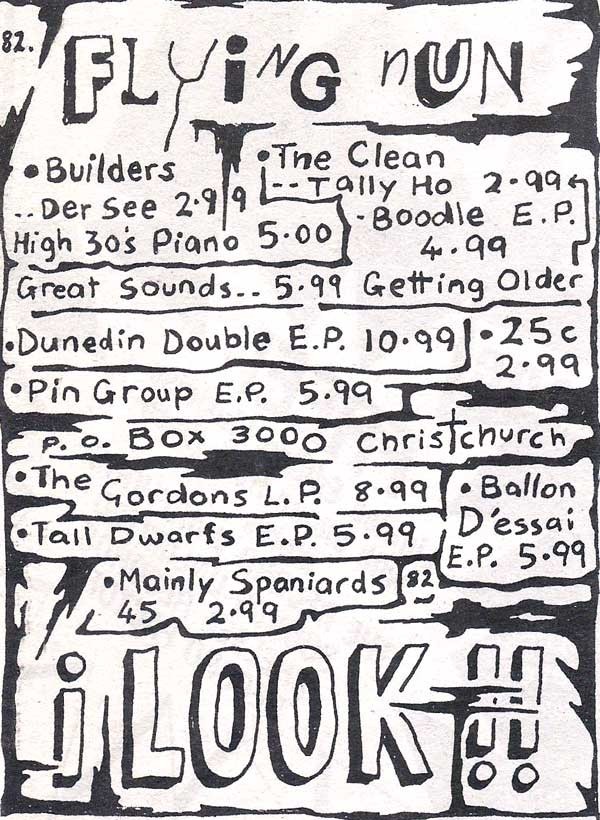 82.
FLyiNG nUN
•Builders
..Der See 2.99
High 30's Piano 5.00
•The Clean
--Tally Ho 2.99
-Boodle E.P.
4.99
Great Sounds.. 5.99 Getting Older
•Dunedin Double E.P. 10.99
•25c
2.99
•Pin Group E.P. 5.99
P.O. Box 3000 Christchurch
•The Gordons L.P. 8.99
•Ballon
D'essai
E.P. 5.99
•Tall Dwarfs E.P. 5.99
•Mainly Spaniards
45 2.99
82
¡LOOK!!